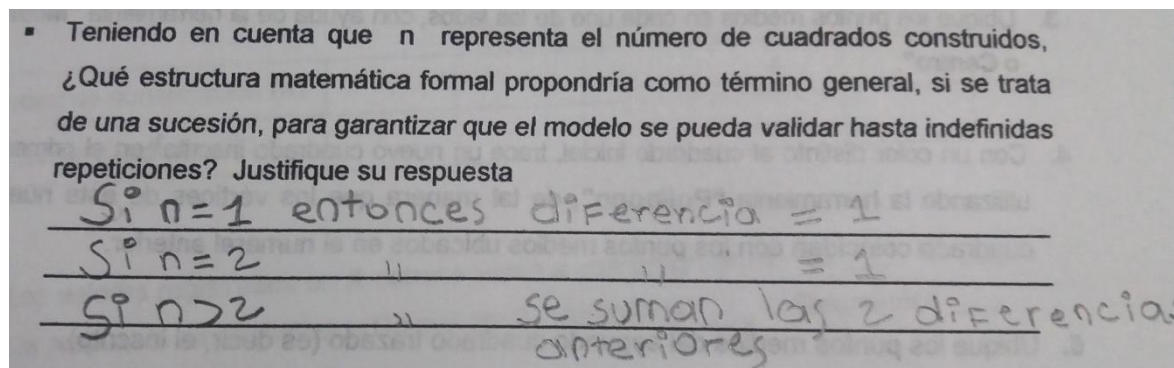 ▪ Teniendo en cuenta que n representa el número de cuadrados construidos,
¿Qué estructura matemática formal propondría como término general, si se trata
de una sucesión, para garantizar que el modelo se pueda validar hasta indefinidas
repeticiones? Justifique su respuesta
Si n=1 entonces diferencia = 1
Si n=2 " " = 1
Si n>2 " se suman las 2 diferencia
anteriores